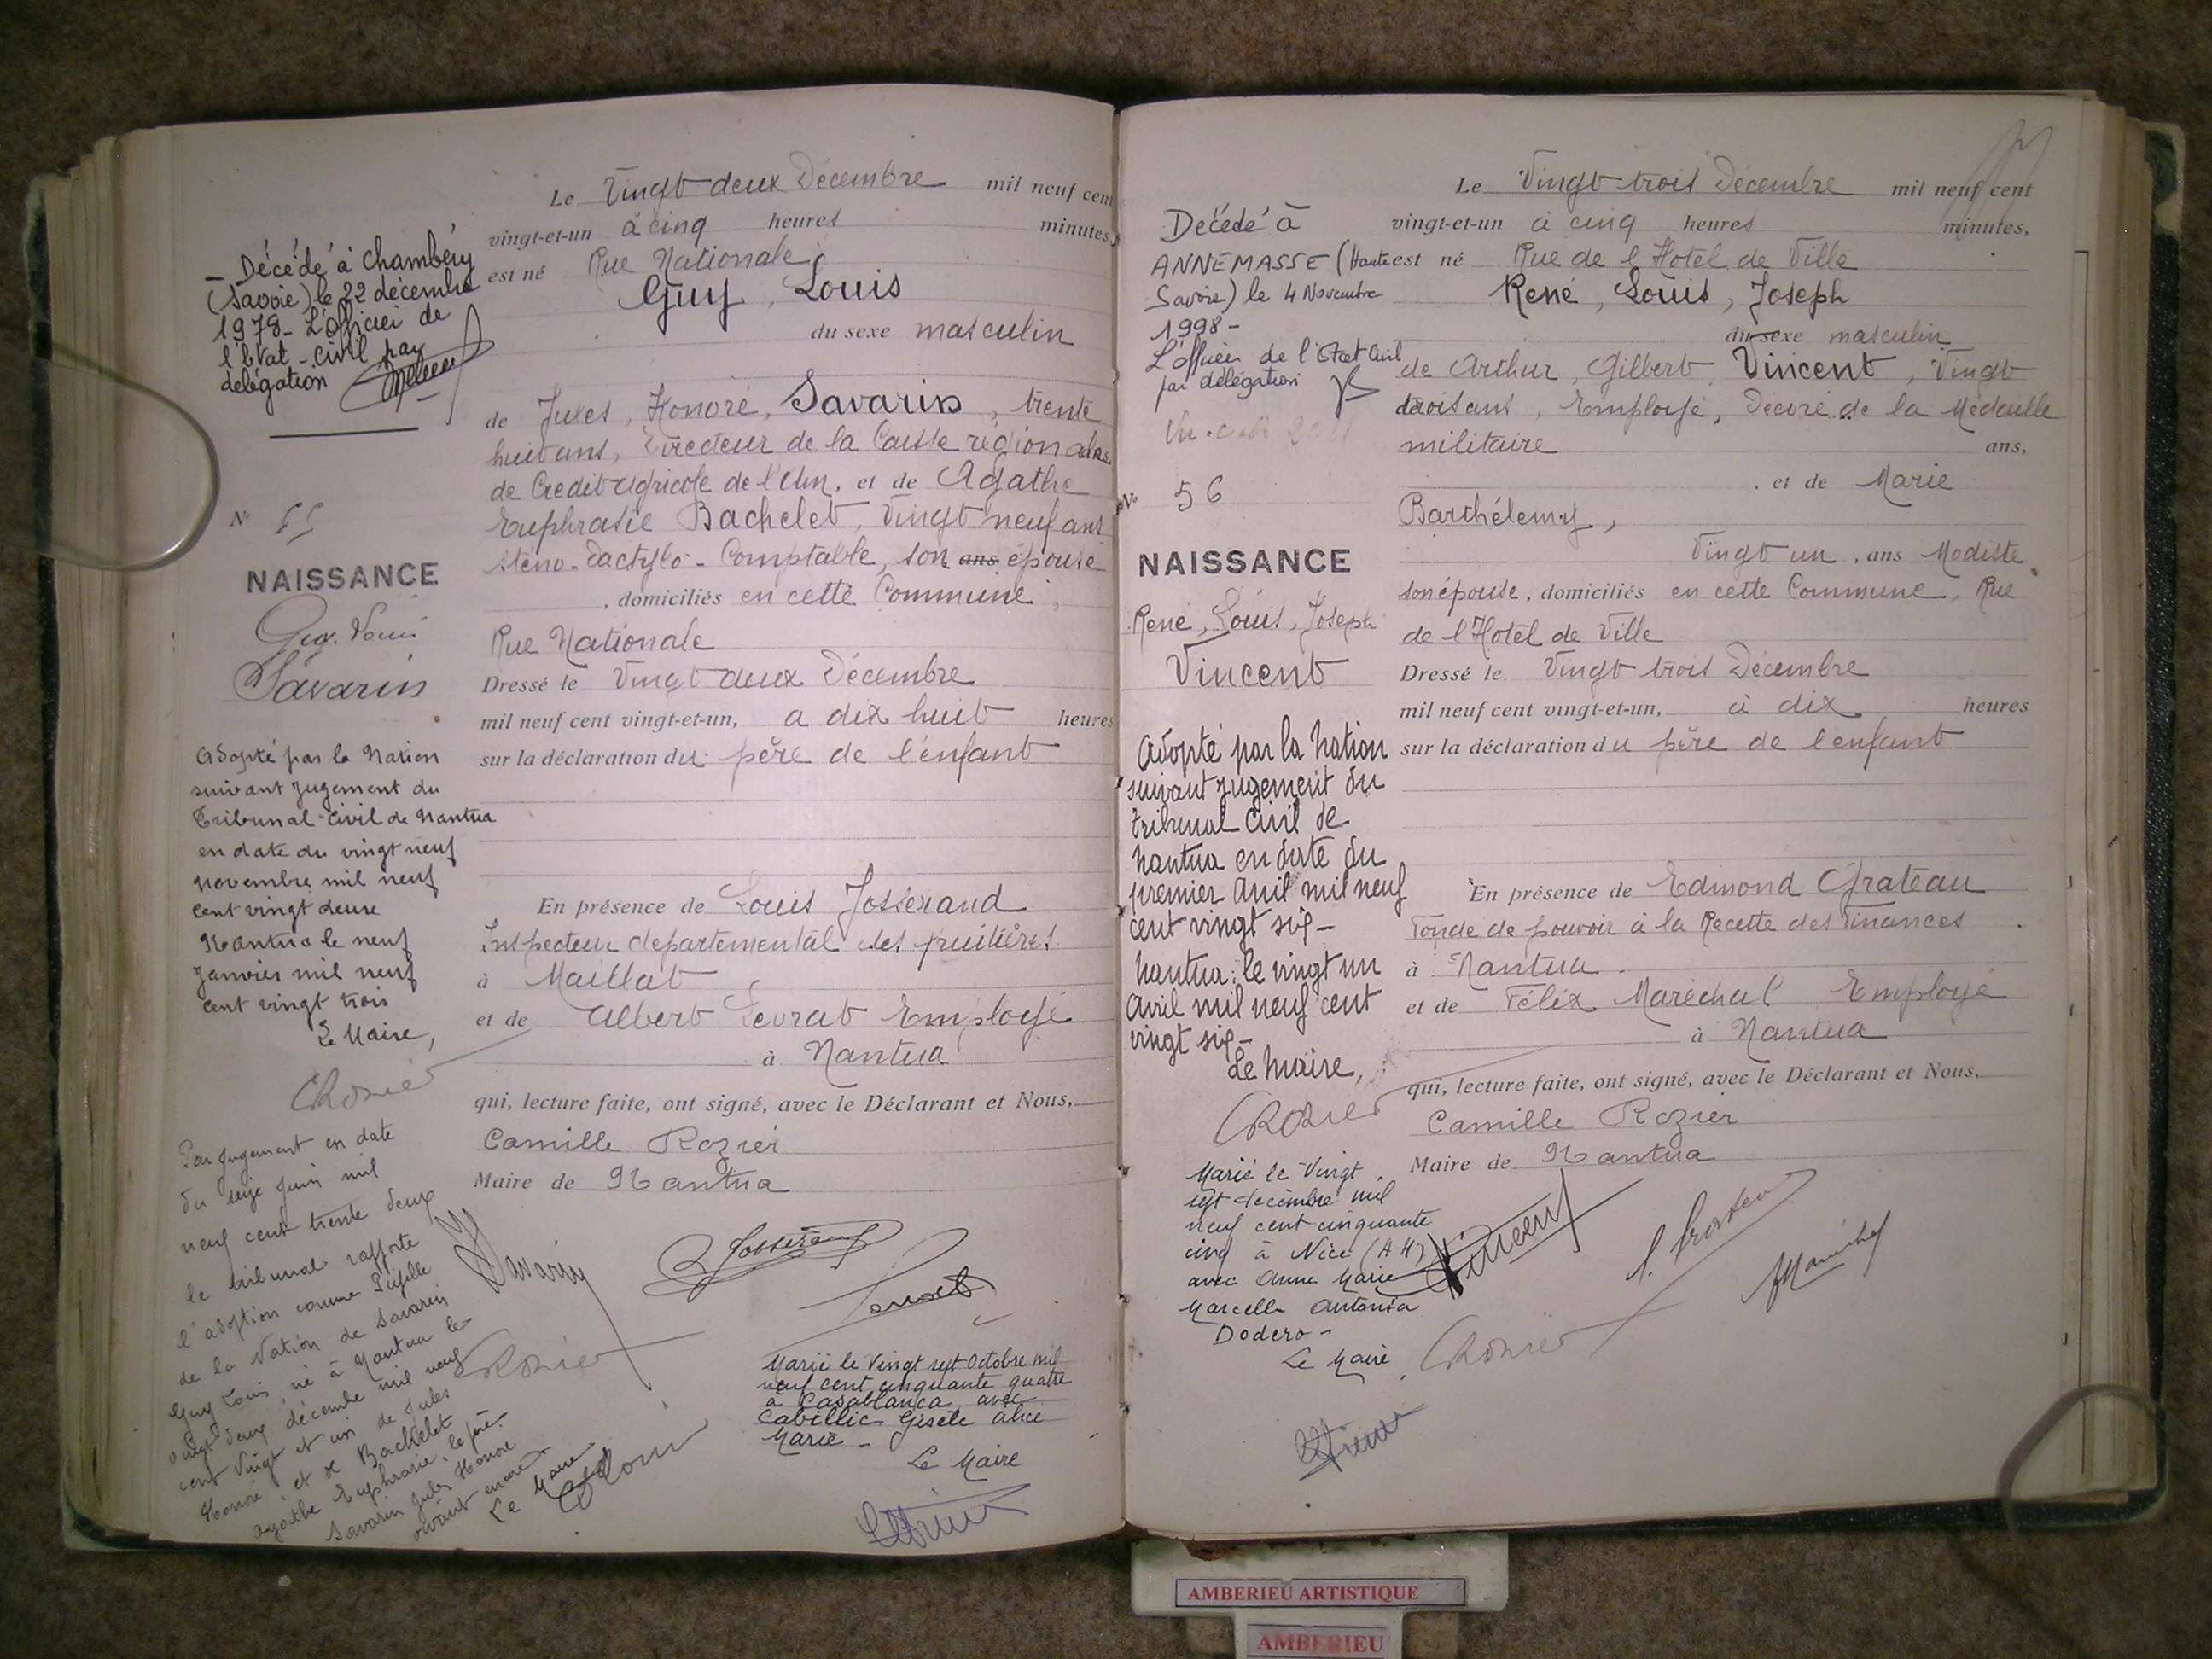 Le Vingt deux Décembre mil neuf cent
vingt-et-un à cinq heures minutes,
est né Rue Nationale,
Guy, Louis
du sexe masculin
de Jules, Honoré, Savarin, trente
huit ans, Directeur de la Caisse régionale
de Crédit Agricole de l'Ain, et de Agathe
Euphrasie Bachelet, Vingt neuf ans
Sténo-Dactylo-Comptable, son ans épouse
, domiciliés en cette Commune,
Rue Nationale
Dressé le Vingt deux Décembre
mil neuf cent vingt-et-un, a dix huit heures
sur la déclaration du père de l'enfant
En présence de Louis Josserand
Inspecteur départemental des fruitières
à Maillat
et de Albert Levrat Employé
à Nantua
qui, lecture faite, ont signé, avec le Déclarant et Nous,
Camille Rozier
Maire de Nantua
- Décédé à Chambéry
(Savoie) le 22 décembre
1978 - L'Officier de
l'Etat-civil par
délégation
N° 55
NAISSANCE
Guy. Louis
Savarin
Adopté par la Nation
suivant jugement du
Tribunal Civil de Nantua
en date du vingt neuf
novembre mil neuf
cent vingt deux
Nantua le neuf
Janvier mil neuf
cent vingt trois
Le Maire,
CRozier
Par jugement en date
du seize juin mil
neuf cent trente deux
le tribunal rapporte
l'adoption comme Pupille
de la Nation de Savarin
Guy Louis, né à Nantua le
vingt deux décembre mil neuf
cent vingt et un de Jules
Honoré et de Bachelet
Agathe Euphrasie, le père
Savarin Jules Honoré
vivant encore
Le Maire
Savarin
Josserand
Levrat
CRozier
Marié le Vingt sept Octobre mil
neuf cent cinquante quatre
à Casablanca avec
Cabillic Gisèle Alice
Marie -
Le Maire
Le Vingt trois Décembre mil neuf cent
vingt-et-un à cinq heures minutes,
est né Rue de l'Hotel de Ville
René, Louis, Joseph
du sexe masculin
de Arthur, Gilbert, Vincent, Vingt
trois ans, Employé, Décoré de la Médaille
militaire ans,
, et de Marie
Barthélemy,
Vingt un, ans Modiste
son épouse, domiciliés en cette Commune, Rue
de l'Hotel de Ville
Dressé le Vingt trois Décembre
mil neuf cent vingt-et-un, à dix heures
sur la déclaration du père de l'enfant
En présence de Edmond Grateau
Fondé de pouvoir à la Recette des Finances
à Nantua
et de Félix Maréchal Employé
à Nantua
qui, lecture faite, ont signé, avec le Déclarant et Nous,
Camille Rozier
Maire de Nantua
Décédé à
ANNEMASSE (Haute
Savoie) le 4 Novembre
1998 -
L'officier de l'Etat Civil
par délégation
N° 56
NAISSANCE
René, Louis, Joseph
Vincent
Adopté par la Nation
suivant jugement du
tribunal Civil de
Nantua en date du
premier Avril mil neuf
cent vingt six -
Nantua, le vingt un
Avril mil neuf cent
vingt six -
Le Maire,
CRozier
Marié le Vingt
sept décembre mil
neuf cent cinquante
cinq à Nice (A M)
avec Anne Marie
Marcelle Antonia
Dodero -
Le Maire
Vincent
CRozier
AMBERIEU ARTISTIQUE
AMBERIEU